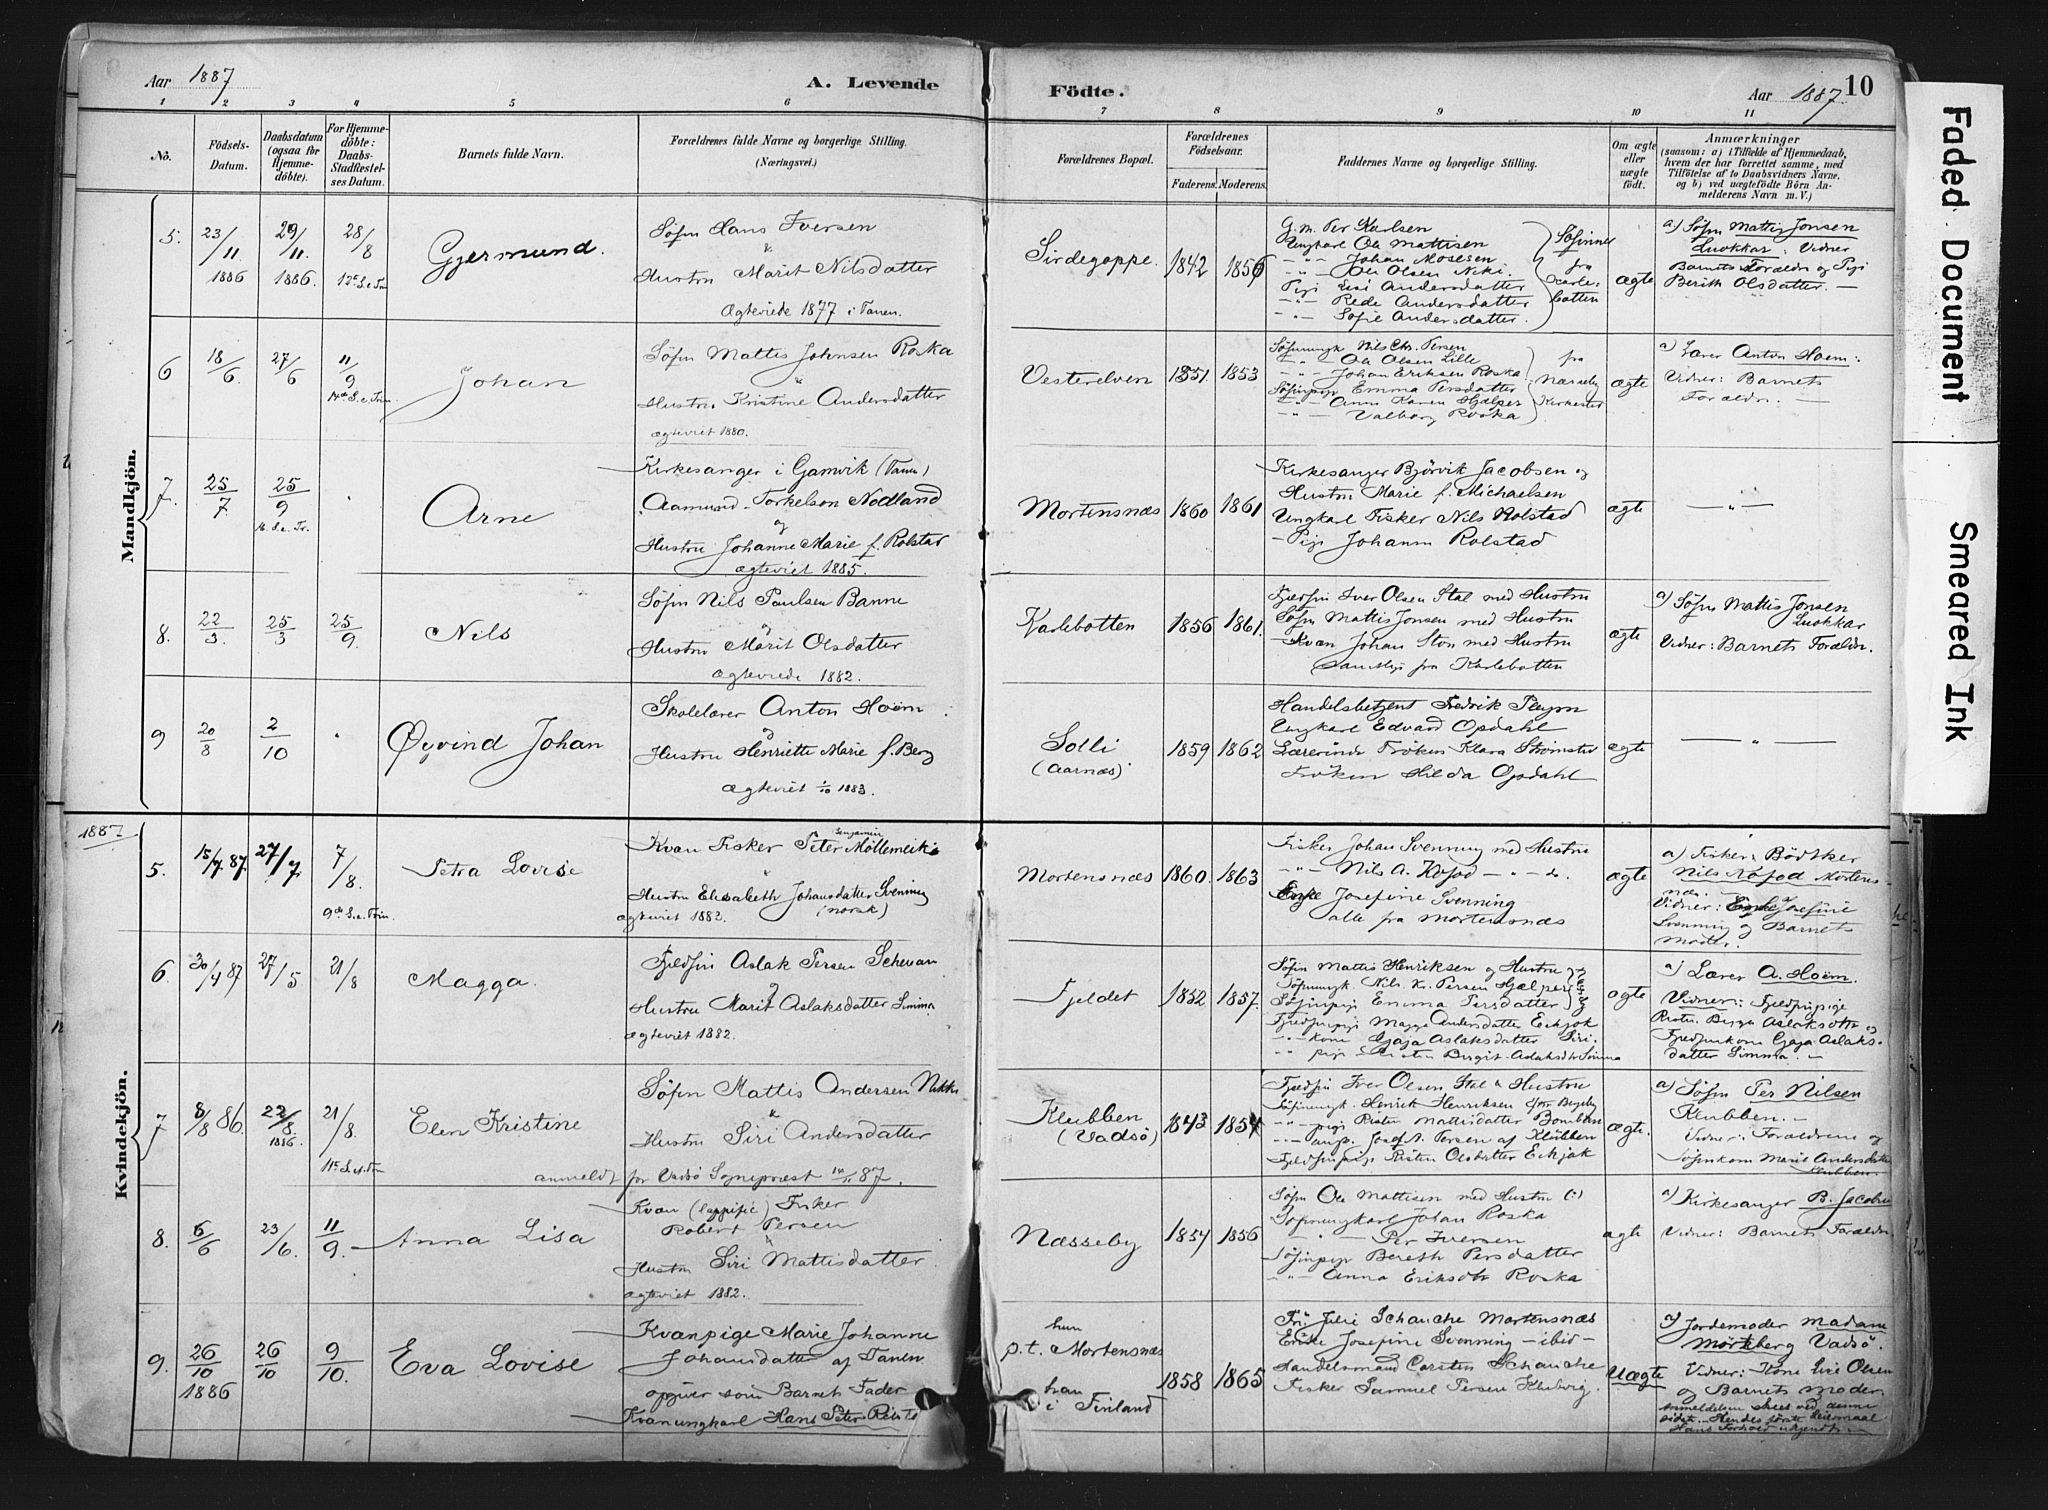 Aar 1887
A. Levende
Födte.
Aar 1887.
10
1 2 3 4 5 6 7 8 9 10 11
No.
Födsels-Datum.
Daabsdatum (ogsaa for Hjemme-döbte).
For Hjemme-döbte: Daabs-Stadfæstel-ses Datum.
Barnets fulde Navn.
Forældrenes fulde Navne og borgerlige Stilling.
(Næringsvei.)
Forældrenes Bopæl.
Forældrenes Födselsaar.
Faderens. Moderens.
Faddernes Navne og borgerlige Stilling.
Om ægte eller uægte födt.
Anmærkninger
(saasom: a) i Tilfælde af Hjemmedaab,
hvem der har forrettet samme, med
Tilföielse af to Daabsvidners Navne.
og b) ved uægtefödte Börn An-
melderens Navn m. V.)
Mandkjön.
5. 23/11 1886 29/11 1886. 28/8 12te S. e Trin
Gjermund.
Söfin Hans Iversen
&
Hustru Marit Nilsdatter
Ægteviede 1877 i Tanen.
Sirdegoppe. 1842 1856
G. m. Per Karlsen
Ungkarl Ole Mattisen
-"- Johan Mosesen
-"- Ole Olsen Niki.
Pige Elsi Andersdatter
-"- Rede Andersdatter
-"- Sofie Andersdatter.
Söfinner fra Karlebotten
ægte
a) Söfin Mattis Jonsen
Luokkar. Vidner
Barnets Forældr og Pige
Berith Olsdatter. —
6 18/6. 27/6 11/9 14de S. e. Trin.
Johan
Söfin Mattis Johnsen Roska
Hustru Kristine Andersdatter
ægteviet 1880.
Vesterelven 1851 1853
Söfinungk Nils Chr. Persen
-"- Ole Olsen Lille
-"- Johan Eriksen Roska
Söfinpige Emma Persdatter
-"- Anne Karen Hjelper
-"- Valborg Roska
fra Næsseby Kirkested
ægte
a) Lærer Anton Hoem:
Vidner: Barnets
Forældr. —
7 25/7. 25/9 16. S. e. Tr.
Arne
Kirkesanger i Gamvik (Tanen)
Aamund Torkelson Nodland
og
Hustru Johanne Marie f. Rolstad
ægteviet 1885.
Mortensnæs 1860 1861
Kirkesanger Björvik Jacobsen og
Hustru Marie f. Michaelsen
Ungkarl Fisker Nils Rolstad
Pige Johanna Rolstad
ægte
—"—
8. 22/3. 25/3 25/9
Nils
Söfin Nils Paulsen Banne
og
Hustru Marit Olsdatter
ægteviede 1882.
Karlebotten 1856 1861.
Fjeldfin Iver Olsen Stal med Hustru
Söfin Mattis Jonsen med Hustru
Kvæn Johan Ston med Hustru
samtlige fra Karlebotten
ægte
a) Söfin Mattis Jonsen
Luokkar
Vidner: Barnets Forældr.
9 20/8 2/10
Öyvind Johan
Skolelærer Anton Hoëm
og
Hustru Henriette Marie f. Berg
ægteviet 1/10 1883.
Solli
(Aarnæs)
1859 1862
Handelsbetjent Fredrik
Ungkarl Edvard Opdahl
Lærerinde Fröken Klara
Fröken Hilda Opdahl
ægte
—"—
1887.
Kvindekjön.
5. 15/7. 87. 27/7. 7/8. 9de S. e. Trin.
Petra Lovise
Kvæn Fisker Peter Benjamin Möllemeik
Hustru Elisabeth Johansdatter Svenning
ægteviet 1882. (norsk)
Mortensnæs 1860. 1863
Fisker Johan Svenning med Hustru
-"- Nils A. Kofod -"- do.
Enke Josefine Svenning
alle fra Mortensnæs
ægte
a) Fisker Bödtker
Nils Kofod Mortens-
næs.
Vidner: Enke Josefine
Svenning og Barnets
Moder.
6 30/4 87 27/5 21/8
Magga.
Fjeldfin Aslak Persen Schevan
&
Hustru Marit Aslaksdatter Simma
ægteviet 1882.
Fjeldet 1852 1857.
Söfin Mattis Henriksen og Hustru
Söfinungk. Nils K. Persen Hjelper
Söfinpige Emma Persdatter
Fjeldfinpige Magga Andersdatter Eckjok
-"- kone Gaja Aslaksdatter Siri
-"- pige Risten Birgit Aslaksdtr Simma
ægte
a) Lærer A. Hoëm.
Vidner: Fjeldfinpige
Risten Birgit Aslaksdtr og
Fjeldfinkone Gaja Aslaks-
datter Simma. —
7 8/8 86. 22/8. 1886 21/8. 11te S. e. Trin
Elen Kristine
Söfin Mattis Andersen Nikki
&
Hustru Siri Andersdatter
anmeldt for Vadsö Sognepræst 87.
Klubben
(Vadsö)
1843 1854
Fjeldfin Iver Olsen Stal & Hustru
Söfinungk. Henrik Henriksen
-"- pige Risten Mathisdatter
-"- ungk. Josef A. Persen af Klubben
Fjeldfinpige Risten Olsdatter Eckjok
ægte.
a) Söfin Per Nilsen
Klubben. —
Vidner: Forældrene og
Söfinkone Marie Andersdatter
Klubben
8. 6/6 23/6. 11/9. —
Anna Lisa
Kvæn (lappisk) Fisker
Robert Persen
&
Hustru Siri Mattisdatter
ægteviet 1882.
Næsseby 1854 1856
Söfin Ole Mattisen med Hustru
Söfinungkarl Johan Roska
-"- Per Iversen
Söfinpige Bereth Persdatter
-"- Anna Eriksdtr Roska
ægte
a) Kirkesanger B. Jacobsen
Vidner: Barnets Forældre.
9. 26/10 1886 26/10 9/10.
Eva Lovise
Kvænpige Marie Johanne
Johansdatter af Tanen
opgiver som Barnets Fader
Kvænungkarl Hans Peter
hun
p.t. Mortensnæs
han
i Finland
1858 1865
Frk. Julie Schanche Mortensnæs
Enke Josefine Svenning — ibid —
Handelsmand Carsten Schanche
Fisker Samuel Persen
Uægte
a) Jordemoder Madam
Mörkberg Vadsö.
Vidner: Kone Olsen
og Barnets Moder
Anmeldelsen skeet ved denne
sidst. Hendes förste Leiermaal
Hans Forhold ukjendt. —
Faded Document
Smeared Ink